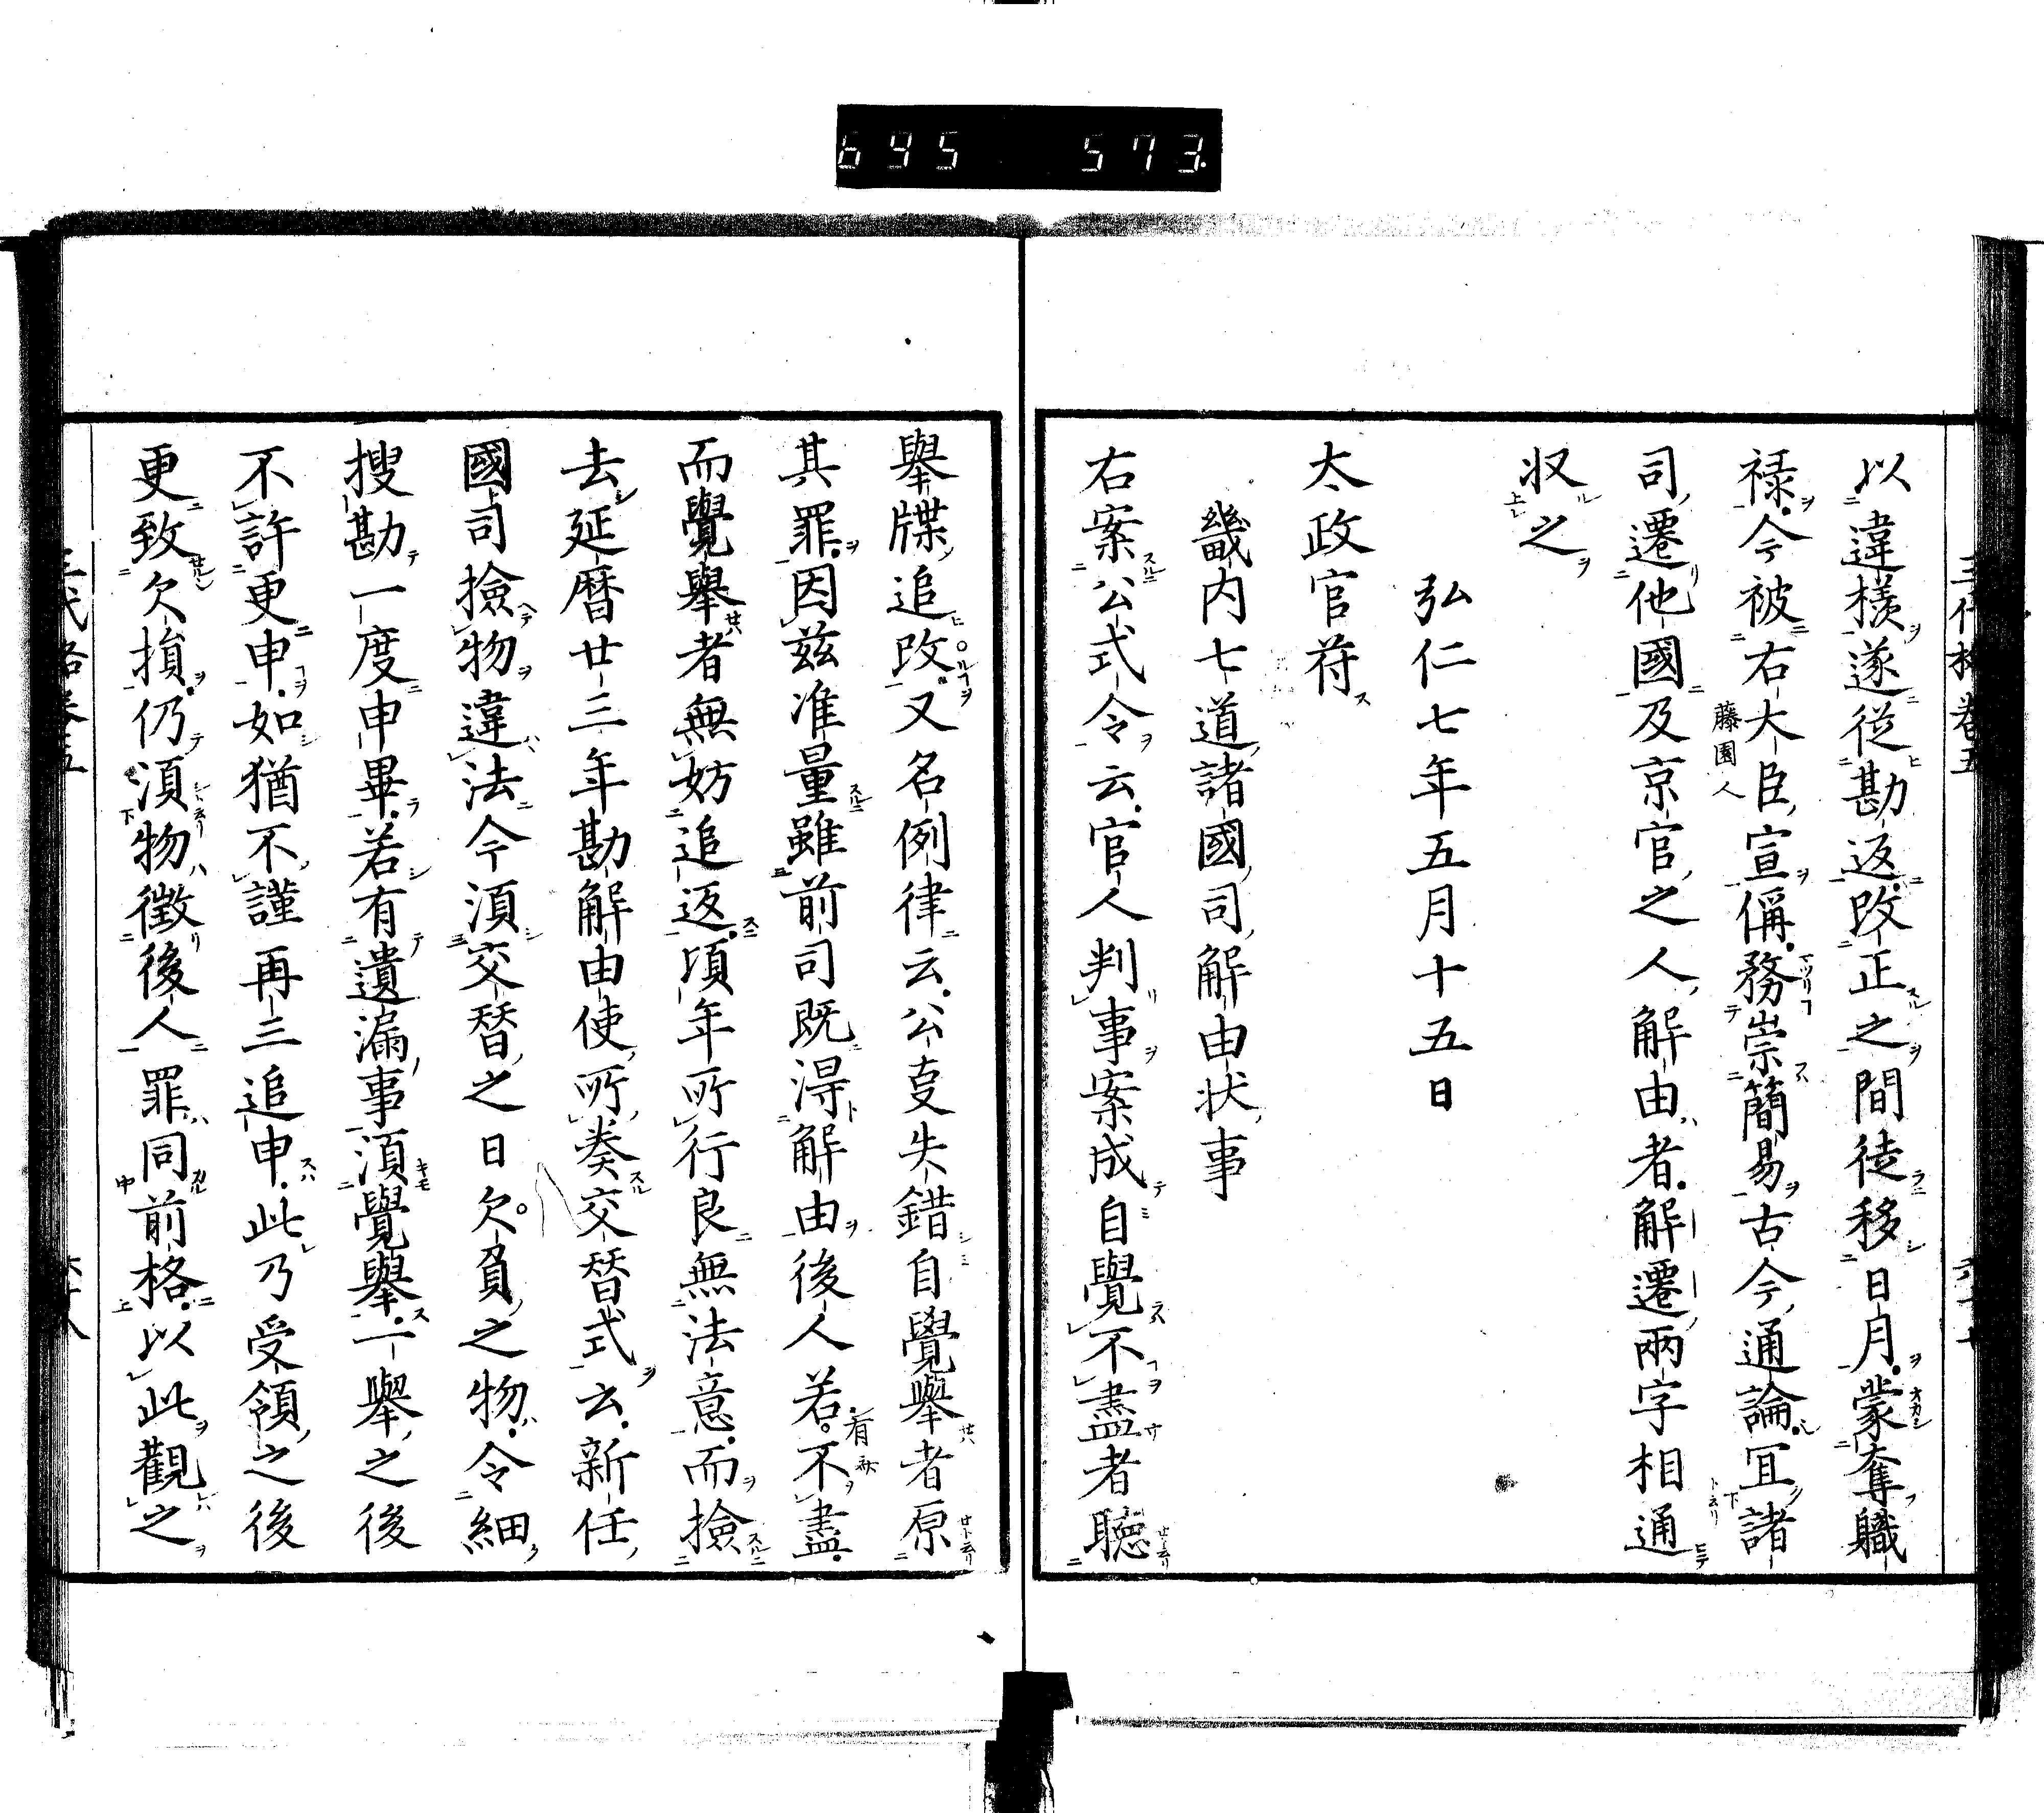 695 573
以違樣遂從勘返改正之間徒移日月蒙奪職
祿今被右大臣宣偁務崇簡易古今通論冝諸
藤園人
司遷他國及京官之人解由者解遷兩字相通
収之
弘仁七年五月十五日
太政官符
畿内七道諸國司解由状事
右案公式令云官人判事案成自覺不盡者聴
舉牒追改又名例律云公㕝失錯自覺舉者原
其罪因茲准量雖前司既淂解由後人若不盡
有
而覺舉者無妨追返頃年所行良無法意而撿
去延暦廿三年勘解由使所奏交替式云新任
國司撿物違法今湏交替之日欠負之物令細
搜勘一度申畢若有遺漏事湏覺舉一舉之後
不許更申如猶不謹再三追申此乃受領之後
更致欠損仍湏物徴後人罪同前格以此觀之